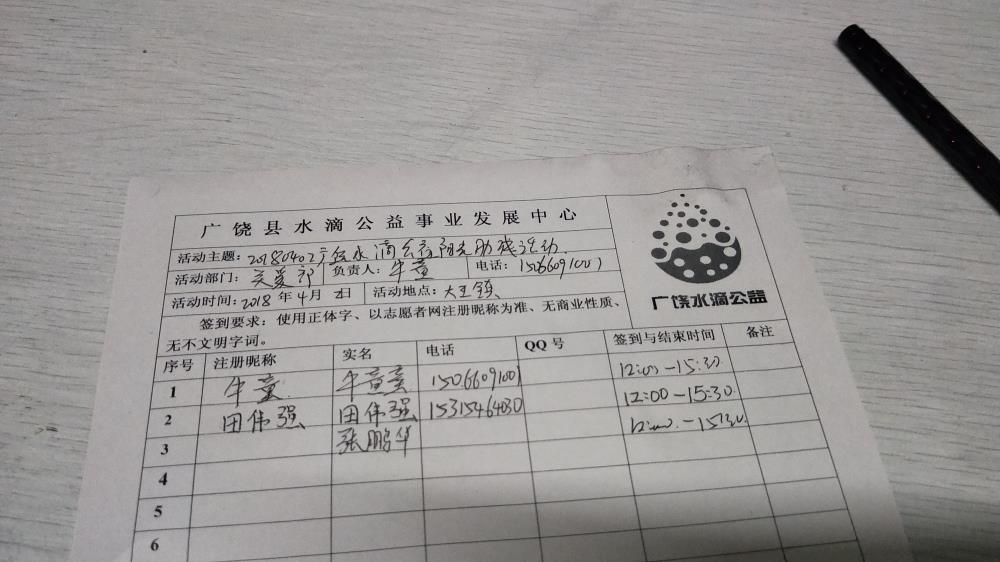 广饶县水滴公益事业发展中心
活动主题：20180402广饶水滴公益阳光助残活动
活动部门：关爱部 负责人：牛童 电话：15066091001
活动时间：2018年4月2日 活动地点：大王镇
签到要求：使用正体字、以志愿者网注册昵称为准、无商业性质、
无不文明字词。
广饶水滴公益
序号 注册昵称 实名 电话 QQ号 签到与结束时间 备注
1 牛童 牛童童 15066091001 12:00-15:30
2 田伟强 田伟强 15315464030 12:00-15:30
3 张鹏华 12:00-15:30
4
5
6